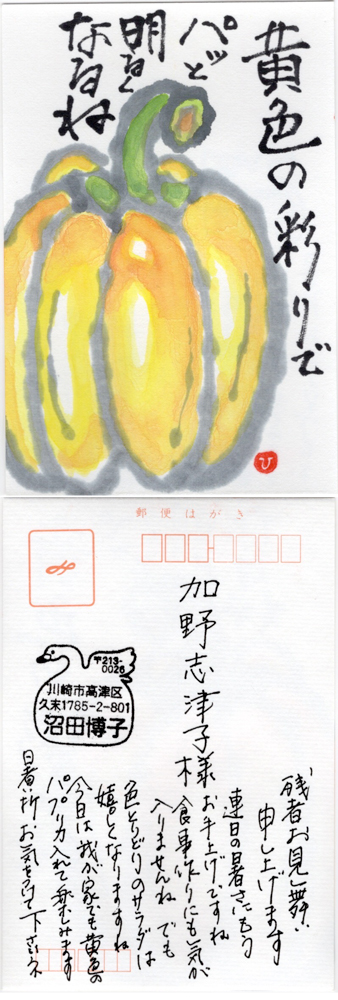 黄色の彩りで
パッと
明るく
なるね
ひ
郵便はがき
加野志津子様
〒213-
0026
川崎市高津区
久末1785-2-801
沼田博子
残暑お見舞い
申し上げます
連日の暑さにもう
お手上げですね
食事作りにも気が
入りませんね でも
色とりどりのサラダは
嬉しくなりますね
今日は我が家でも黄色の
パプリカ入れて楽しみます
暑い折 お気をつけて下さいネ